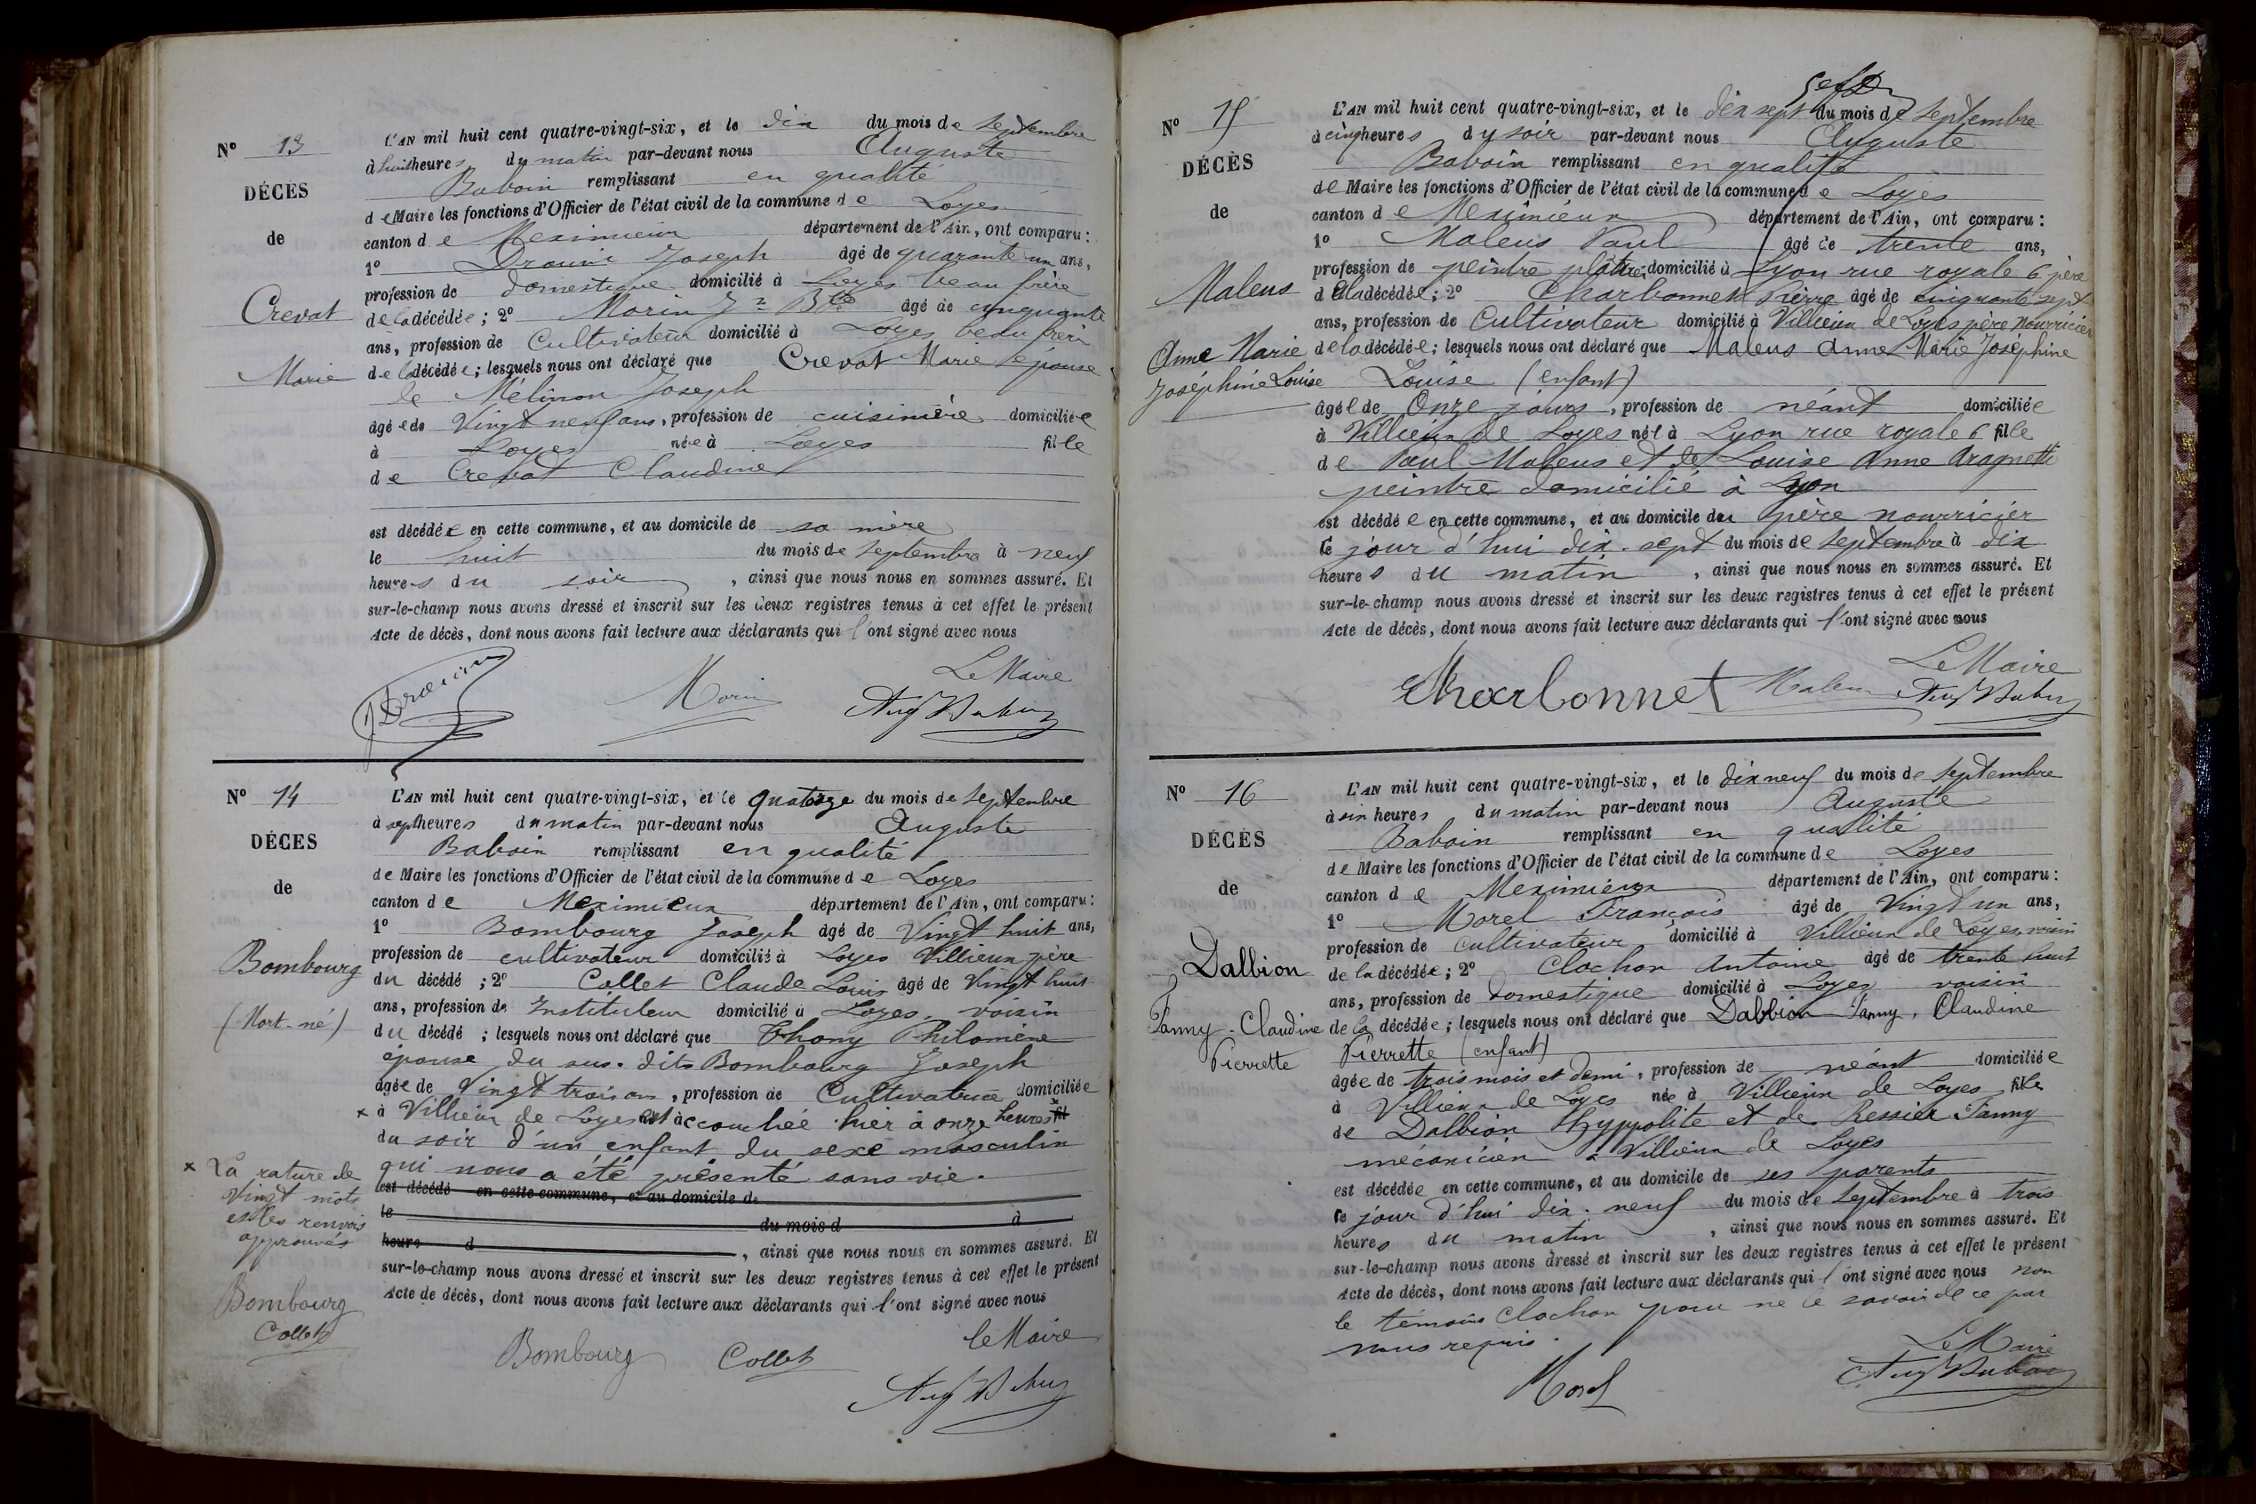 N° 13
DÉCÈS
de
Crevat
Marie
L'AN mil huit cent quatre-vingt-six, et le dix du mois de Septembre
à huit heures du matin par-devant nous Auguste
Baboin remplissant en qualité
de Maire les fonctions d'Officier de l'état civil de la commune de Loyes
canton de Meximieux département de l'Ain, ont comparu :
1° Drouin Joseph âgé de quarante un ans,
profession de domestique domicilié à Loyes beau frère
de la décédée ; 2° Morin Jn Bte âgé de cinquante
ans, profession de Cultivateur domicilié à Loyes beau frère
de la décédée ; lesquels nous ont déclaré que Crevat Marie épouse
de Mélinon Joseph
âgée de Vingt neuf ans, profession de cuisinière domiciliée
à Loyes née à Loyes fille
de Crevat Claudine
est décédée en cette commune, et au domicile de sa mère
le huit du mois de Septembre à neuf
heures du soir, ainsi que nous nous en sommes assuré. Et
sur-le-champ nous avons dressé et inscrit sur les deux registres tenus à cet effet le présent
Acte de décès, dont nous avons fait lecture aux déclarants qui l'ont signé avec nous
Le Maire
JDrouin Morin Aug Baboin
N° 14
DÉCÈS
de
Bombourg
(Mort-né)
L'AN mil huit cent quatre-vingt-six, et le quatorze du mois de Septembre
à sept heures du matin par-devant nous Auguste
Baboin remplissant en qualité
de Maire les fonctions d'Officier de l'état civil de la commune de Loyes
canton de Meximieux département de l'Ain, ont comparu :
1° Bombourg Joseph âgé de Vingt huit ans,
profession de cultivateur domicilié à Loyes Villieux père
du décédé ; 2° Collet Claude Louis âgé de Vingt huit
ans, profession de Instituteur domicilié à Loyes, voisin
du décédé ; lesquels nous ont déclaré que Thony Philomène
épouse du sus-dits Bombourg Joseph
âgée de Vingt trois ans, profession de Cultivatrice domiciliée
x à Villieux de Loyes est accouchée hier à onze heures
du soir d'un enfant du sexe masculin
qui nous a été présenté sans vie.
est décédé en cette commune, et au domicile de
le du mois d à
heure d , ainsi que nous nous en sommes assuré. Et
sur-le-champ nous avons dressé et inscrit sur les deux registres tenus à cet effet le présent
Acte de décès, dont nous avons fait lecture aux déclarants qui l'ont signé avec nous
x La rature de
Vingt mots
et les renvois
approuvés
Bombourg
Collet
le Maire
Bombourg Collet Aug Baboin
N° 15
DÉCÈS
de
Maleus
Anne Marie
Joséphine Louise
L'AN mil huit cent quatre-vingt-six, et le dix sept du mois de Septembre
à cinq heures du soir par-devant nous Auguste
Baboin remplissant en qualité
de Maire les fonctions d'Officier de l'état civil de la commune de Loyes
canton de Meximieux département de l'Ain, ont comparu :
1° Maleus Paul âgé de trente ans,
profession de peintre plâtrier domicilié à Lyon rue royale 6 père
de la décédée ; 2° Charbonnet Pierre âgé de cinquante sept
ans, profession de Cultivateur domicilié à Villieux de Loyes père nourricier
de la décédée ; lesquels nous ont déclaré que Maleus Anne Marie Joséphine
Louise (enfant)
âgée de Onze jours, profession de néant domiciliée
à Villieux de Loyes née à Lyon rue royale 6 fille
de Paul Maleus et de Louise Anne
peintre domicilié à Lyon
est décédée en cette commune, et au domicile du père nourricier
le jour d'hui dix-sept du mois de Septembre à dix
heures du matin, ainsi que nous nous en sommes assuré. Et
sur-le-champ nous avons dressé et inscrit sur les deux registres tenus à cet effet le présent
Acte de décès, dont nous avons fait lecture aux déclarants qui l'ont signé avec nous
Le Maire
Charbonnet Maleus Aug Baboin
N° 16
DÉCÈS
de
Dalbion
Fanny-Claudine
Pierrette
L'AN mil huit cent quatre-vingt-six, et le dix neuf du mois de Septembre
à six heures du matin par-devant nous Auguste
Baboin remplissant en qualité
de Maire les fonctions d'Officier de l'état civil de la commune de Loyes
canton de Meximieux département de l'Ain, ont comparu :
1° Morel François âgé de Vingt un ans,
profession de cultivateur domicilié à Villieux de Loyes voisin
de la décédée ; 2° Clochon Antoine âgé de trente huit
ans, profession de domestique domicilié à Loyes voisin
de la décédée ; lesquels nous ont déclaré que Dalbion Fanny, Claudine
Pierrette (enfant)
âgée de trois mois et demi, profession de néant domiciliée
à Villieux de Loyes née à Villieux de Loyes fille
de Dalbion Hyppolite et de Ressier Fanny
mécanicien à Villieux de Loyes
est décédée en cette commune, et au domicile de ses parents
le jour d'hui dix-neuf du mois de Septembre à trois
heures du matin, ainsi que nous nous en sommes assuré. Et
sur-le-champ nous avons dressé et inscrit sur les deux registres tenus à cet effet le présent
Acte de décès, dont nous avons fait lecture aux déclarants qui l'ont signé avec nous non
le témoins Clochon pour ne le savoir de ce par
nous requis.
Le Maire
Morel Aug Baboin